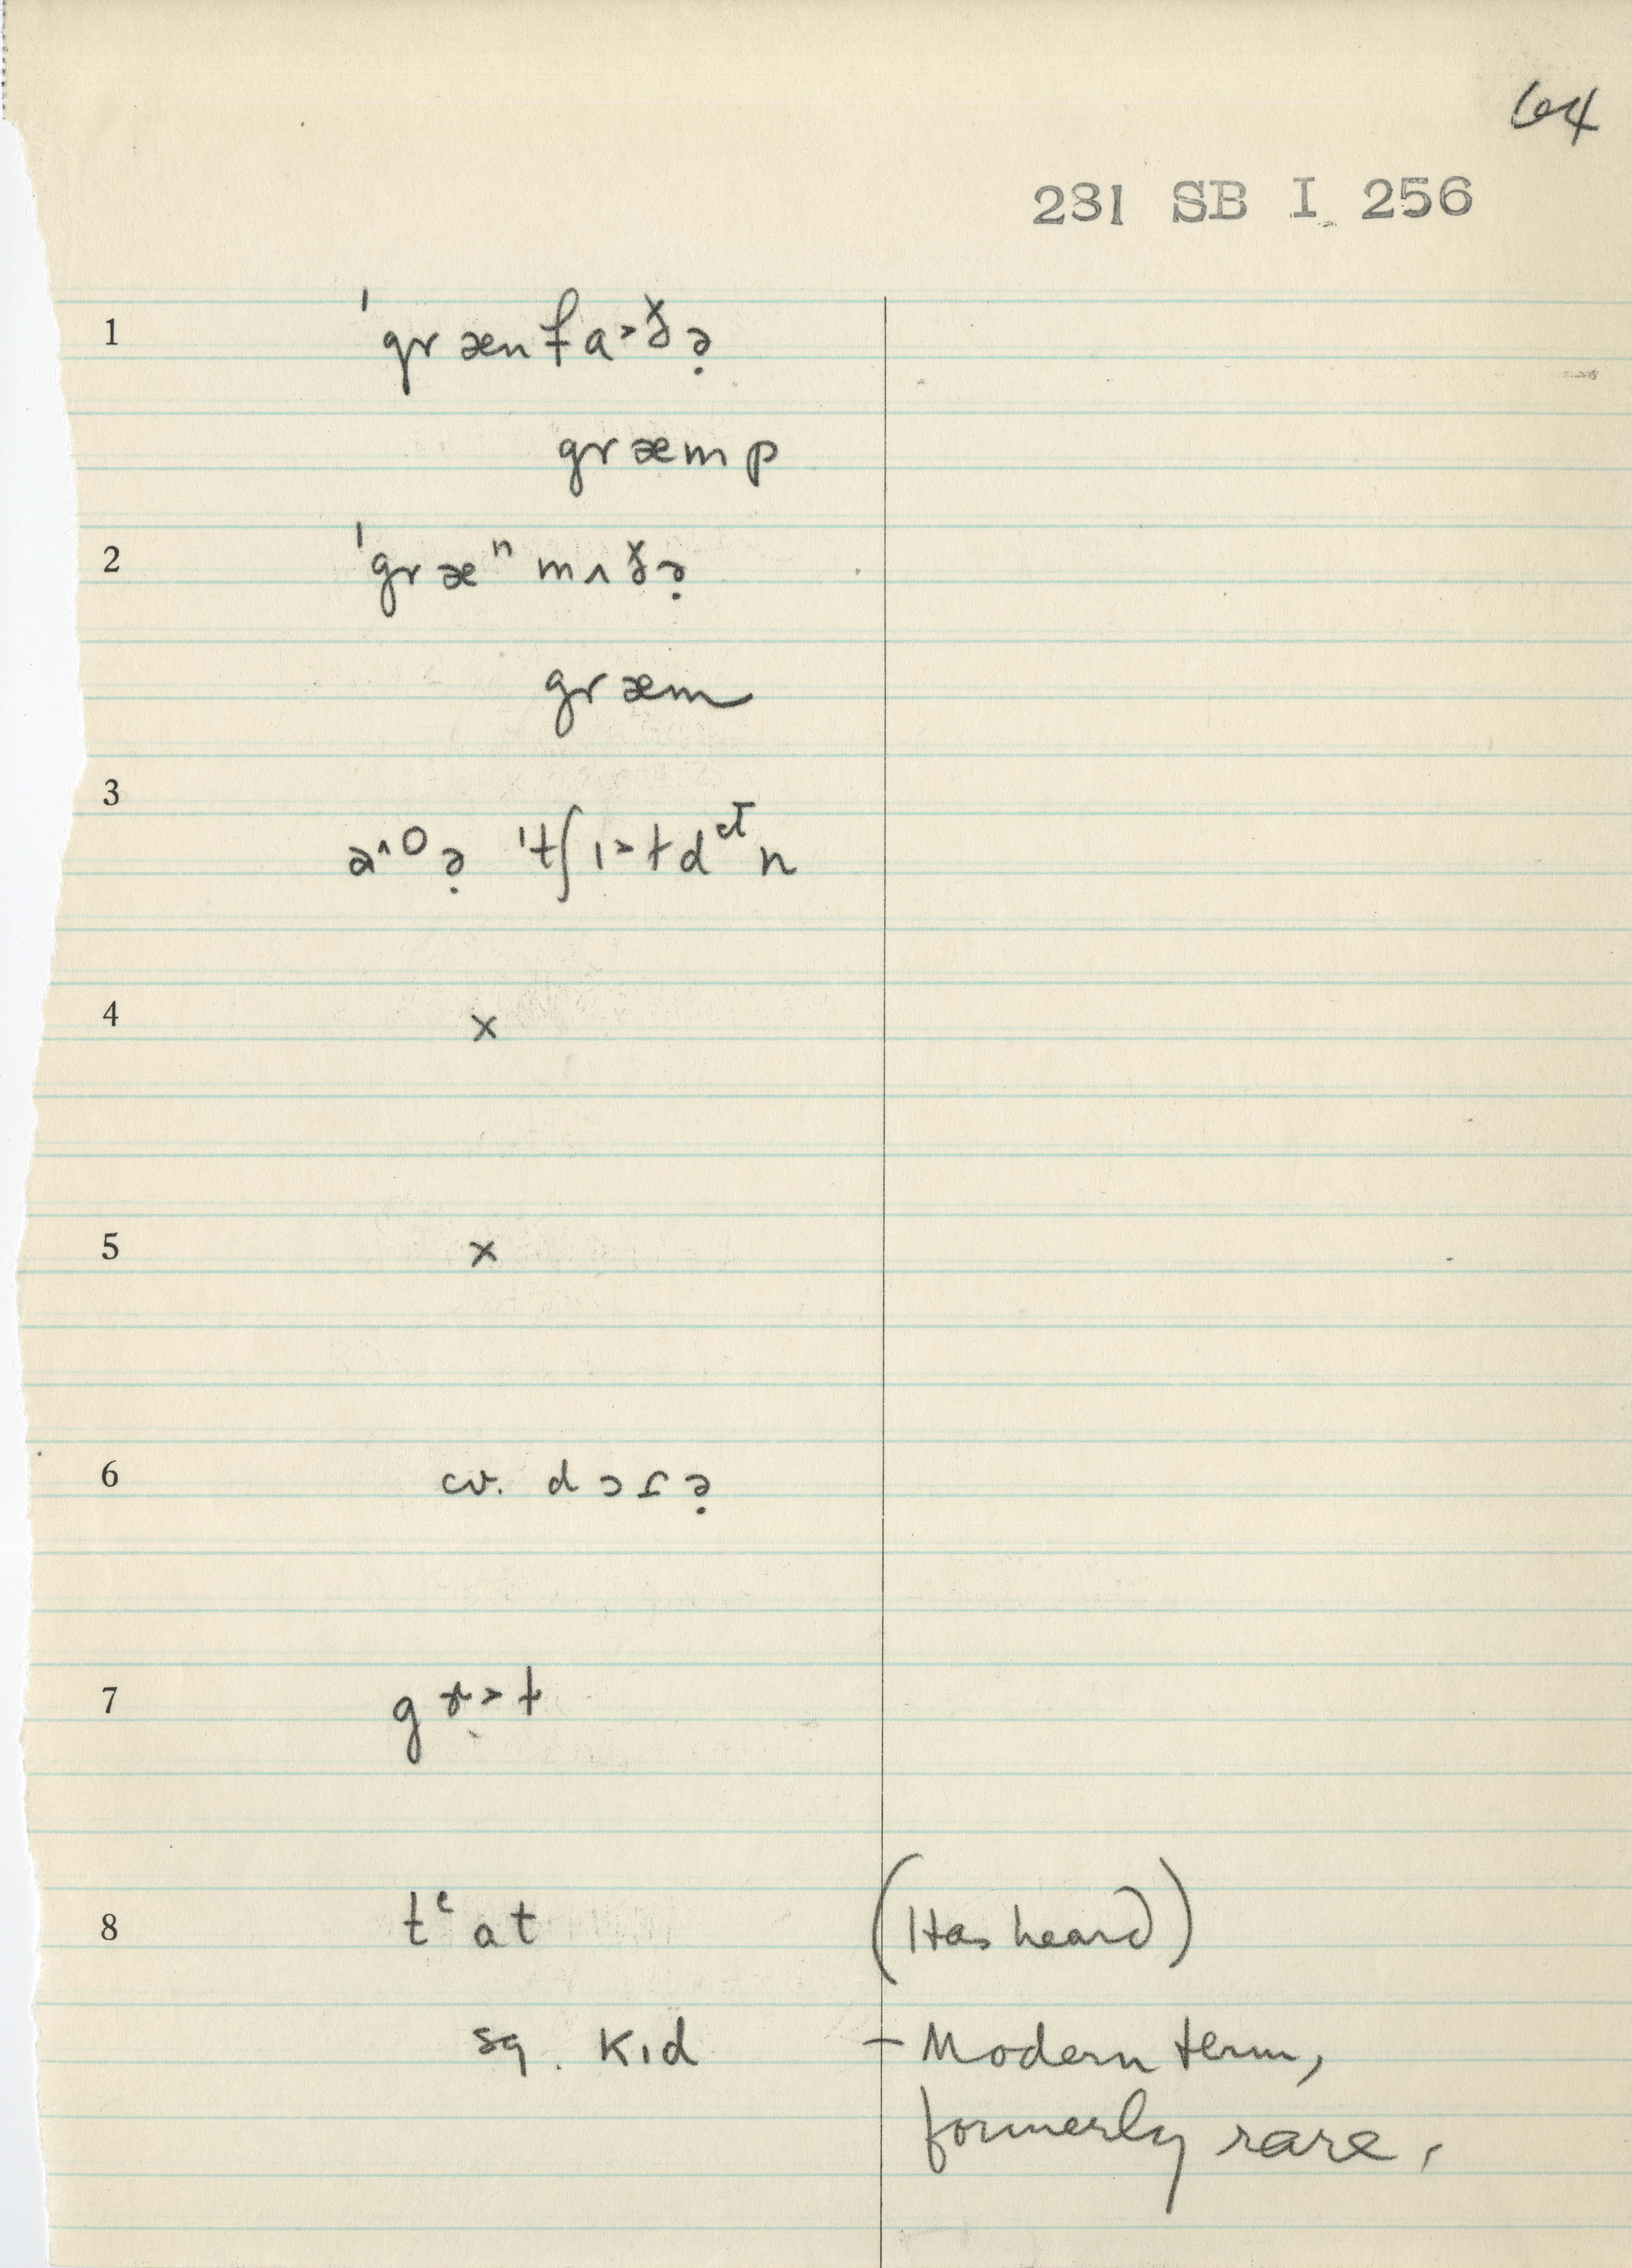 64
231 SB I 256
1 ˈgrænfa˃ðə̣
græmp
2 ˈgræⁿmʌðə̣
græm
3
4 x
5 x
6 cv. dɔɾə̣
7
8 tᶜat (Has heard)
sq. kɪd – Modern term,
formerly rare.